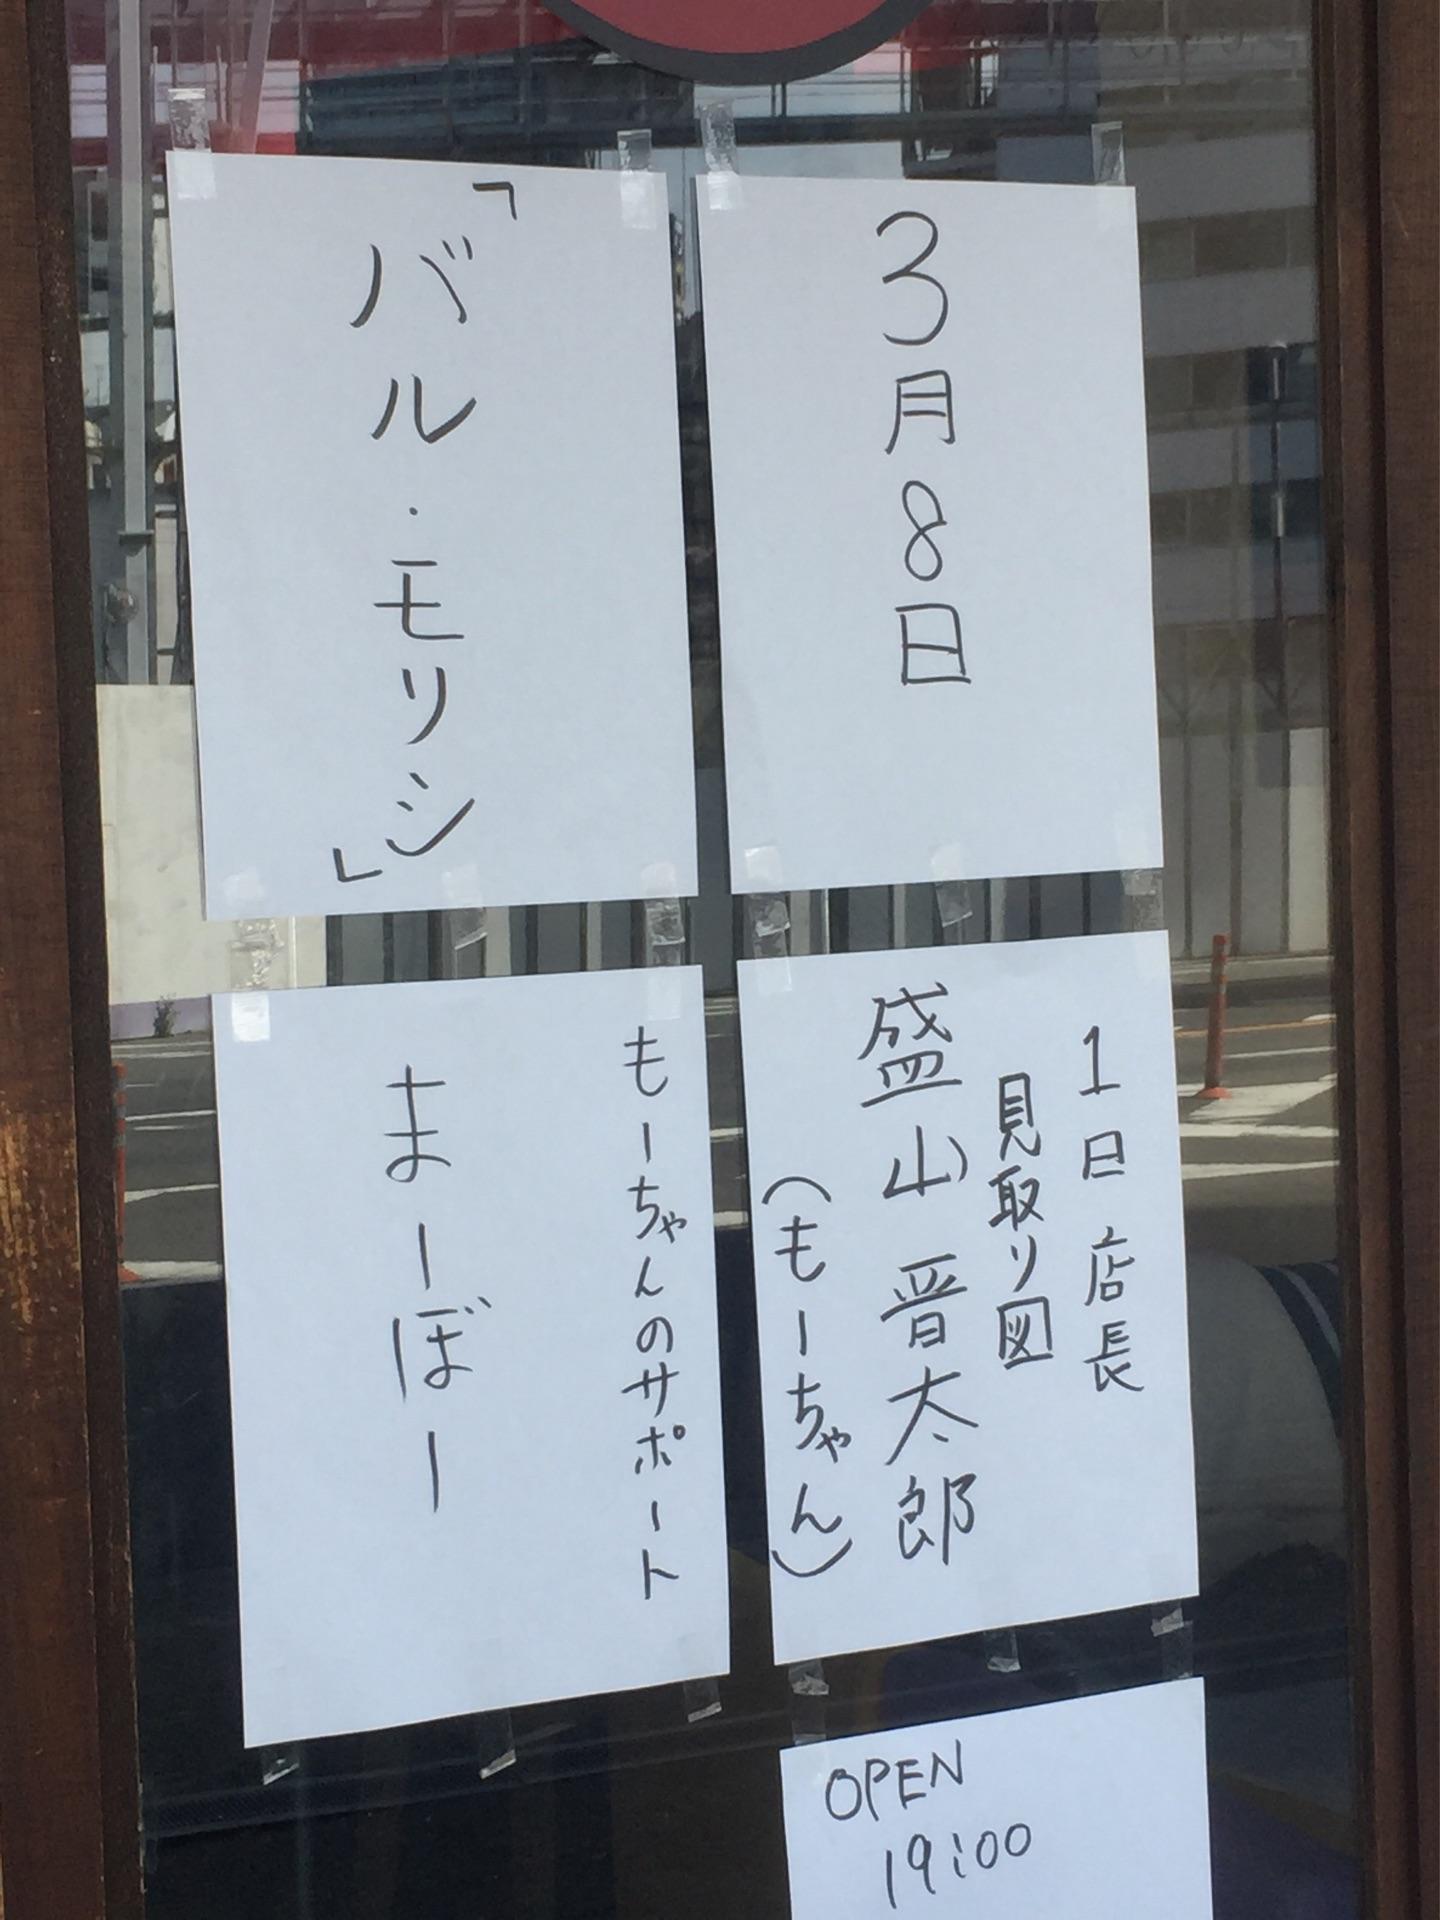 3月8日
「バル・モリシ」
1日店長
見取り図
盛山晋太郎
(もーちゃん)
もーちゃんのサポート
まーぼー
OPEN
19:00